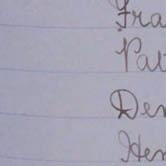 Fra
Pat
Den
Hen